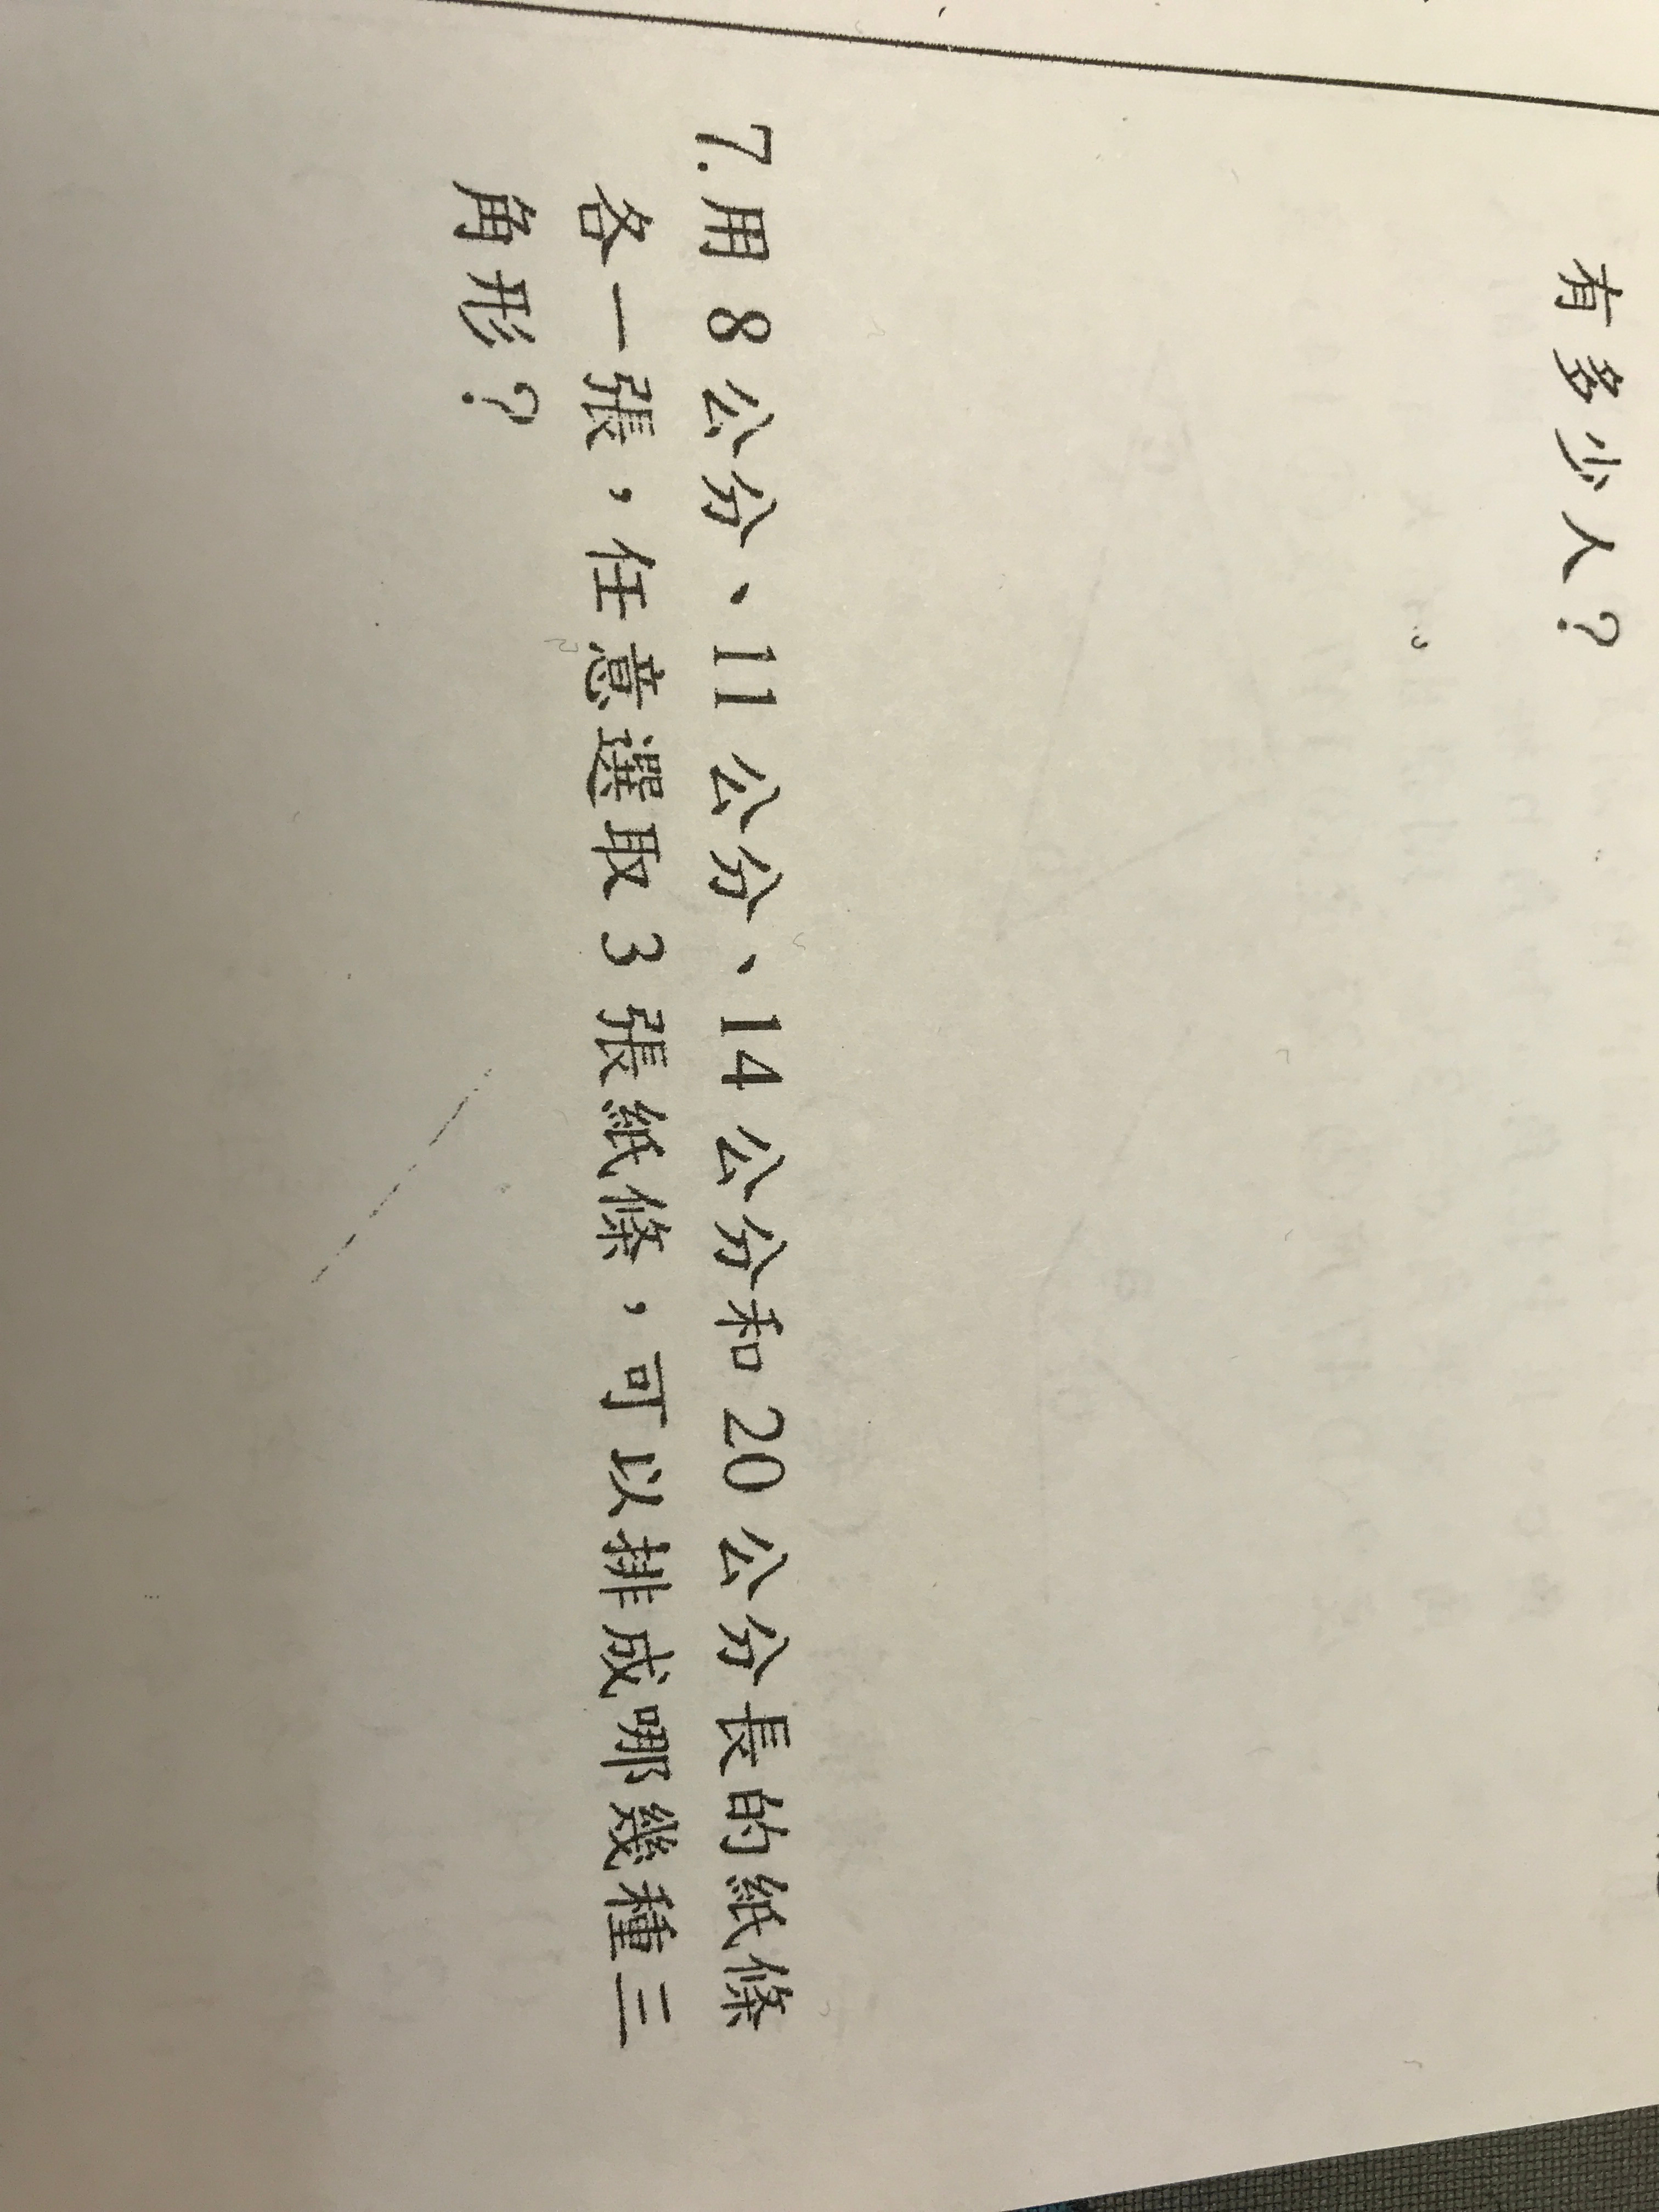 有多少人?
7.用 8 公分、11 公分、14 公分和 20 公分長的紙條
各一張，任意選取 3 張紙條，可以排成哪幾種三
角形?